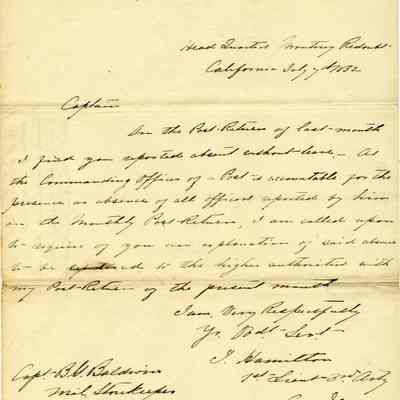 Head Quarters Monterey Redoubt
California July 7th 1852
Captain
On the Post Return of last month
I find you reported absent without leave. As
the Commanding Officer of a Post is accountable for the
presence or absence of all officers reported by him
on the Monthly Post Return, I am called upon
to require of you an explanation of said absence
to be to the higher authorities with
my Post Return of the present month
I am Very Respectfully
Yr. Obdt. Sert.
J. Hamilton
1st Lieut 3rd Arty
Capt.
Mil. Storekeeper